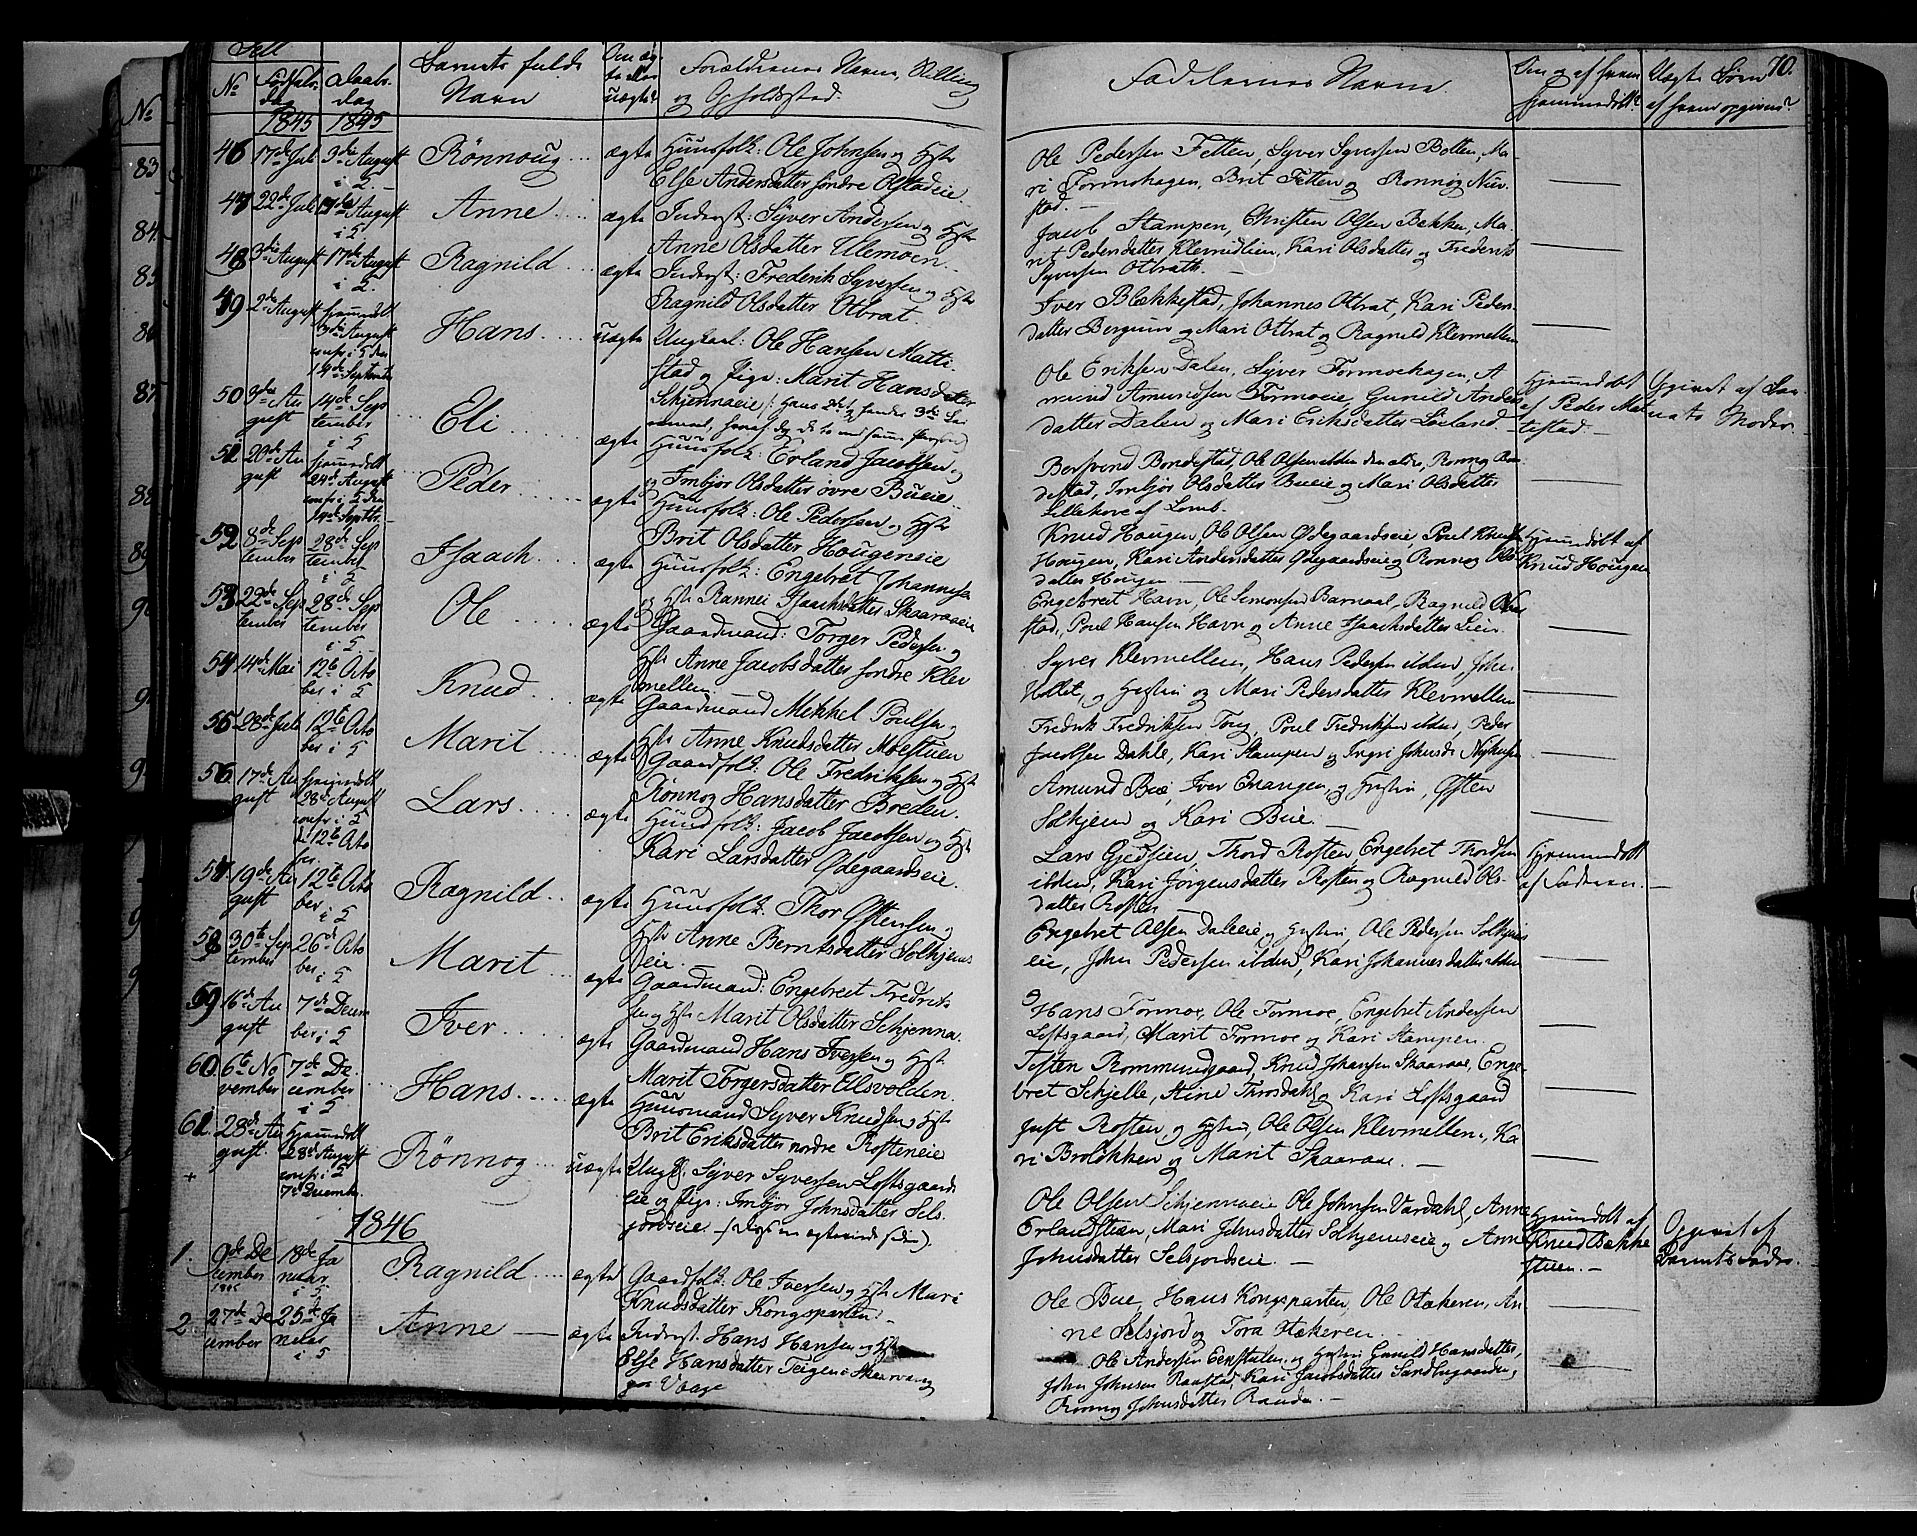 70.
No
Fødsels-
dag
Daabs-
dag
Barnets fulde
Navn
Om æg-
te eller
uægte?
Forældrenes Navn, Stilling
og Opholdssted.
Faddernes Navne.
Om og af hvem
hjemmedøbt?
Uægte Børn
af hvem opgiven?
1845 1845
46 17de Juli 3die August i S. Rönnoug ægte Huusfolk: Ole Johnsen og Hst
Else Andersdatter søndre Olstadeie
Ole Pedersen Fetten, Syver Syversen Botten, Ma-
ri Formohagen, Brit Fetten og Rønnøg
stad. —
47 22de Juli August i S Anne ægte Inderst: Syver Andersen og Hst
Anne Olsdatter Ulemoen
Jacob Stampen, Christen Olsen Bakken, Ma-
rit Pedersdatter Klevmidlien, Kari Olsdatter og Frederik
Syversen Otbrath. —
48 3die August 17de August i S Ragnild ægte Inderst: Frederik Syversen og Hst
Ragnild Olsdatter Otbrat.
Iver Blekkestad, Johannes Otbrat, Kari Peders-
datter Bergum og Mari Otbrat og Ragnild Klevmellen
49 2de August hjemmedøbt
August
conf. i S den
14de September
Hans uægte Ungkarl: Ole Hansen Matti-
stad og Pige: Marit Hansdatter
Skjennaeie
Ole Eriksen Dalen, Syver Formohagen, A-
mund Amundsen Formoeie, Gunild Anders-
datter Dalen og Mari Eriksdatter Løeland.
Hjemmedøbt
af Peder Mat-
testad. —
Opgivet af Bar-
nets Moder.
50 Au-
gust 14de Sep-
tember
i S Eli ægte Huusfolk: Erland Jacobsen og
Imbjør Olsdatter øvre Bueie
Bersvend Bondestad, Ole Olsen ibden den ældre, Rønnog Bon-
destad, Imbjør Olsdatter Bueie og Mari Olsdatter
Lillehove af Lomb.
51 20de Au-
gust hjemmedøbt
24de August
conf. i S den
14de Septbr. Peder ægte Huusfolk: Ole Pedersen og Hst
Brit Olsdatter Hougeneie
Knud Hougen, Ole Olsen Ødegaardseie, Poul Knudsen
Hougen, Kari Andersdatter Ødegaardseie og Rønnog Ols-
datter Hougen —
Hjemmedøbt af
Knud Hougen
52 8de Sep-
tember 28de Sep-
tember
i S Isaach ægte Huusfolk: Engebret Johannesen
og Hst Rannei Isaachsdatter Skaaraaeie
Engebret Havn, Ole Simonsen Barnaal, Ragnild
stad, Poul Hansen Havn og Anne Isaachsdatter Lien.
53 22de Sep-
tember 28de Sep-
tember
i S. Ole ægte Gaardmand: Torger Pedersen og
Hst Anne Jacobsdatter søndre Klev-
mellem
Syver Klevmellem, Hans Pedersen ibden, John
Hollet, og Hustru og Mari Pedersdatter Klevmellem
54 14de Mai 12te Octo-
ber i S Knud ægte Gaardmand Mekkel Poulsen og
Hst Anne Knudsdatter Moestuen
Fredrik Fredriksen Toug, Poul Fredriksen ibden, Peder
Jacobsen Dahle, Kari Stampen og Ingri Johnsdr
55 28de Juli 12te Octo-
ber i S Marit ægte Gaardfolk: Ole Fredriksen og Hst
Rønnog Hansdatter Breden.
Amund Bue, Iver Evangen, og Hustru, Østen
Solhjem og Kari Bue. —
56 17de Au-
gust hjemmedøbt
28de August
conf. i S
d. 12te Octo-
ber. Lars ægte Huusfolk: Jacob Jacobsen og Hst
Kari Larsdatter Ødegaardseie.
Lars Gjedsien, Thord Rosten, Engebret Thordsen
ibden, Kari Jørgensdatter Rosten og Ragnild Ols-
datter Rosten
Hjemmedøbt
af Faderen. —
57 19de Au-
gust 12te Octo-
ber
i S Ragnild ægte Huusfolk: Thor Østensen og
Hst Anne Berntsdatter Solhjems-
eie.
Engebret Olsen Daleeie og Hustru, Ole Pedersen Solhjems-
eie, John Pedersen ibden, Kari Johannesdatter ibden
58 30te Sep-
tember 26de Octo-
ber
i S Marit ægte Gaardmand: Engebret Fredrik-
sen og Hst Marit Olsdatter Skjenna.
Hans Formoe, Ole Formoe, Engebret Andersen
Loftsgaard, Marit Formoe og Kari Stampen.
59 16de Au-
gust 7de Decem-
ber i S Iver ægte Gaardmand Hans Iversen og Hst
Marit Torgersdatter Ulsvolden.
Tosten Rommundgaard, Knud Johansen Skaaraae, Enge-
bret Skjelle, Stine Throsdahl og Kari Loftsgaard
60 6te No-
vember 7de De-
cember
i S Hans ægte Huusmand Syver Knudsen og Hst
Brit Eriksdatter nordre Rosteneie
Just Rosten og Hustru, Ole Olsen Klevmellem, Ka-
ri Broløkken og Marit Skaaraae. —
61. 28de Au-
gust. Hjemmedøbt
28de August
conf. i S
7de Decembr. Rønnog uægte Ungk: Syver Syversen Loftsgaards-
eie og Pige: Imbjør Johnsdatter Sels-
jordseie.
Ole Olsen Skjennaeie Ole Johnsen Vardahl, Anne
Erlandstuen, Mari Johnsdatter Solhjemseie og Anne
Johnsdatter Selsjordseie. —
Hjemmedøbt af
Knud Bække-
stuen. —
Opgivet af
Barnets Fader.
1846
1. 9de De-
cember
1845 18de Ja-
nuar
i S. Ragnild ægte Gaardfolk: Ole Iversen og Hst Mari
Knudsdatter Kongsparten. —
Ole Bue, Hans Kongsparten, Ole Otækeren, An-
ne Selsjord og Tora Otækeren.
2 27de De-
cember 25de Ja-
nuar
i S Anne — ægte Inderst: Hans Hansen og Hst
Else Hansdatter Teigen i Skarvang
Vaage
Ole Andersen Eenstalen og Hustru Gunild Hansdatter,
John Johnsen Ranstad, Kari Jacobsdatter Sandbugaarden,
Rønnog Johnsdatter Randen. —
83
84.
85
86
87.
88